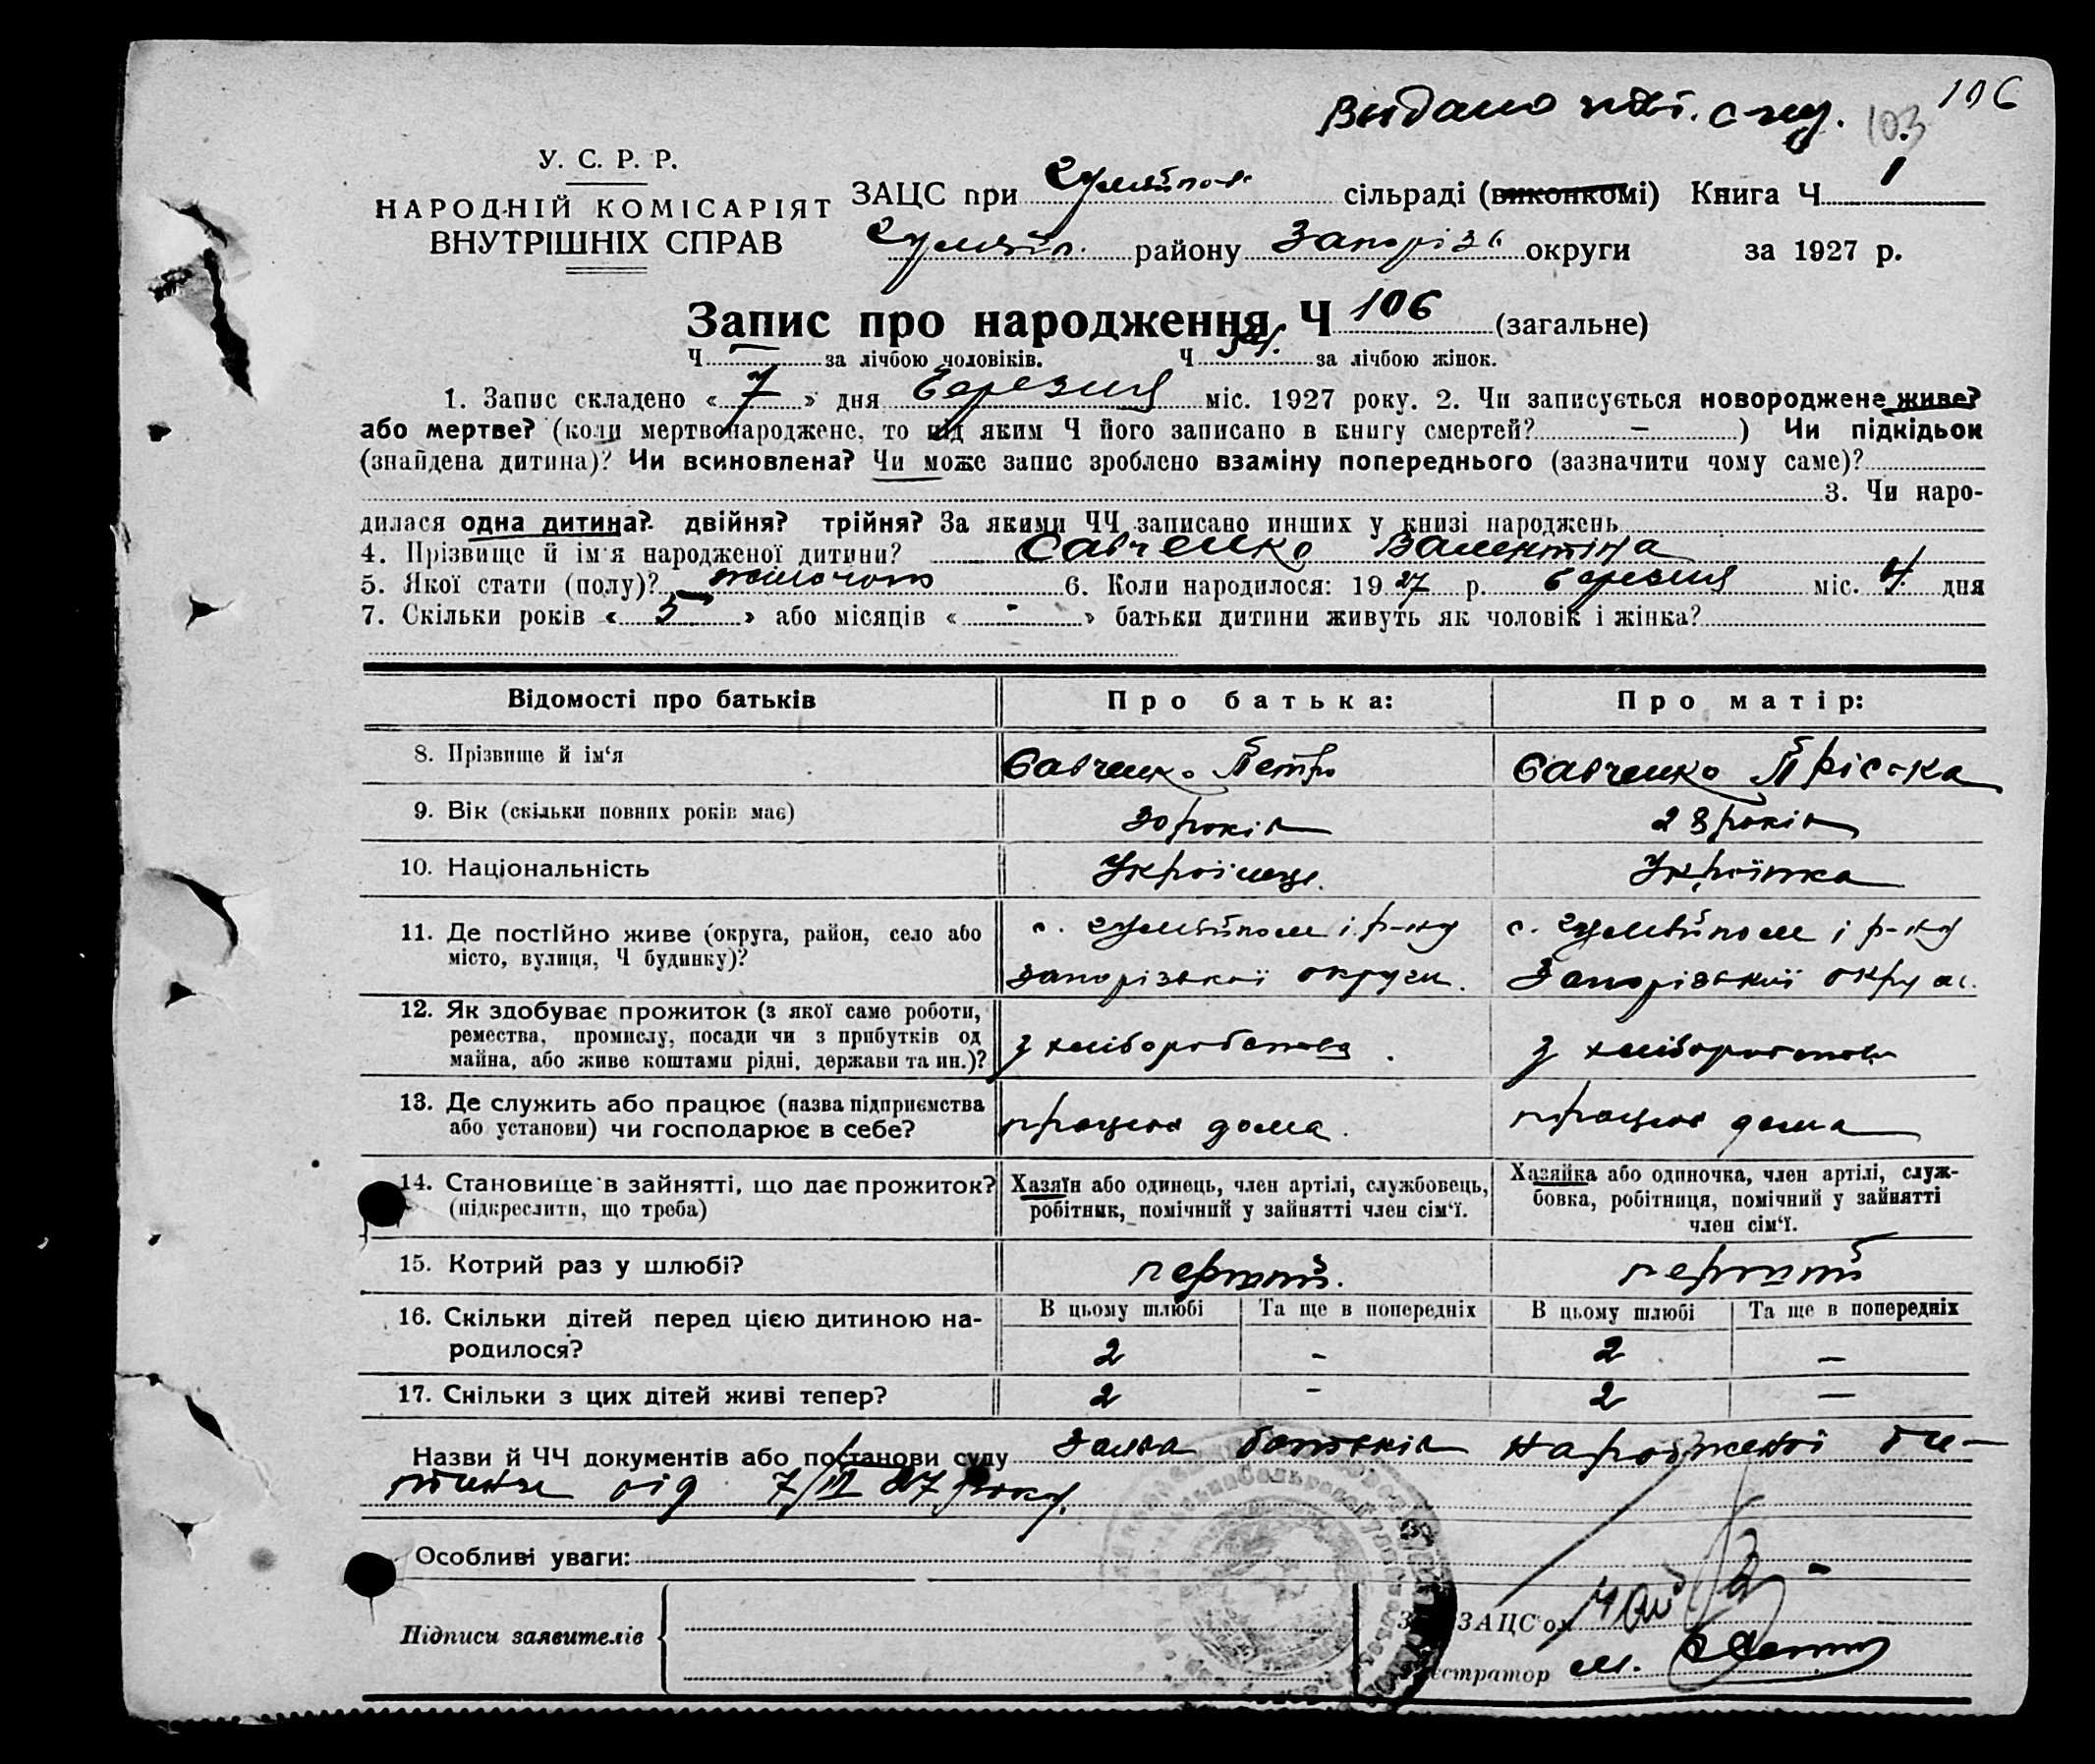 Видано 103 106
У. С. Р. Р.
НАРОДНІЙ КОМІСАРІЯТ
ВНУТРІШНІХ СПРАВ
ЗАЦС при Гуляйпол. сільраді (виконкомі) Книга Ч 1
Гуляйп. району Запоріз. округи за 1927 р.
Запис про народження Ч 106 (загальне)
Ч — за лічбою чоловіків. Ч за лічбою жінок.
1. Запис складено « 7 » дня березня міс. 1927 року. 2. Чи записується новороджене живе?
або мертве? (коли мертвонароджене, то під яким Ч його записано в книгу смертей? — ) Чи підкідьок
(знайдена дитина)? Чи всиновлена? Чи може запис зроблено взаміну попереднього (зазначити чому саме)?
3. Чи наро-
дилася одна дитина? двійня? трійня? За якими ЧЧ записано инших у книзі народжень
4. Прізвище й ім'я народженої дитини? Савченко Валентіна
5. Якої стати (полу)? жіночого 6. Коли народилося: 1927 р. березня міс. 4. дня
7. Скільки років « 5 » або місяців « - » батьки дитини живуть як чоловік і жінка?
Відомості про батьків Про батька: Про матір:
8. Прізвище й ім‘я Савченко Петро Савченко Пріська
9. Вік (скільки повних років має) 30 років 28 років
10. Національність Українець. Українка
11. Де постійно живе (округа, район, село або с. Гуляйполе і р-ну с. Гуляйполе і р-ну
місто, вулиця, Ч будинку)? Запорізької округи. Запорізької округи.
12. Як здобуває прожиток (з якої саме роботи,
ремества, промислу, посади чи з прибутків од з хліборобства. з хліборобства
майна, або живе коштами рідні, держави та ин.)?
13. Де служить або працює (назва підприємства працює дома. працює дома
або установи) чи господарює в себе?
14. Становище в зайнятті, що дає прожиток? Хазяїн або одинець, член артілі, службовець, Хазяйка або одиночка, член артілі, служ-
(підкреслити, що треба) робітник, помічний у зайнятті член сім‘ї. бовка, робітниця, помічний у зайнятті
член сім‘ї.
15. Котрий раз у шлюбі? перший. перший
В цьому шлюбі Та ще в попередніх В цьому шлюбі Та ще в попередніх
16. Скільки дітей перед цією дитиною на-
родилося? 2 - 2 —
17. Скільки з цих дітей живі тепер? 2 - 2 —
Назви й ЧЧ документів або постанови суду Заява батьків народженої ди-
тини від 7/III 27 року.
Особливі уваги:
Підписи заявителів
ЗАЦС'ом
Реєстратор М.